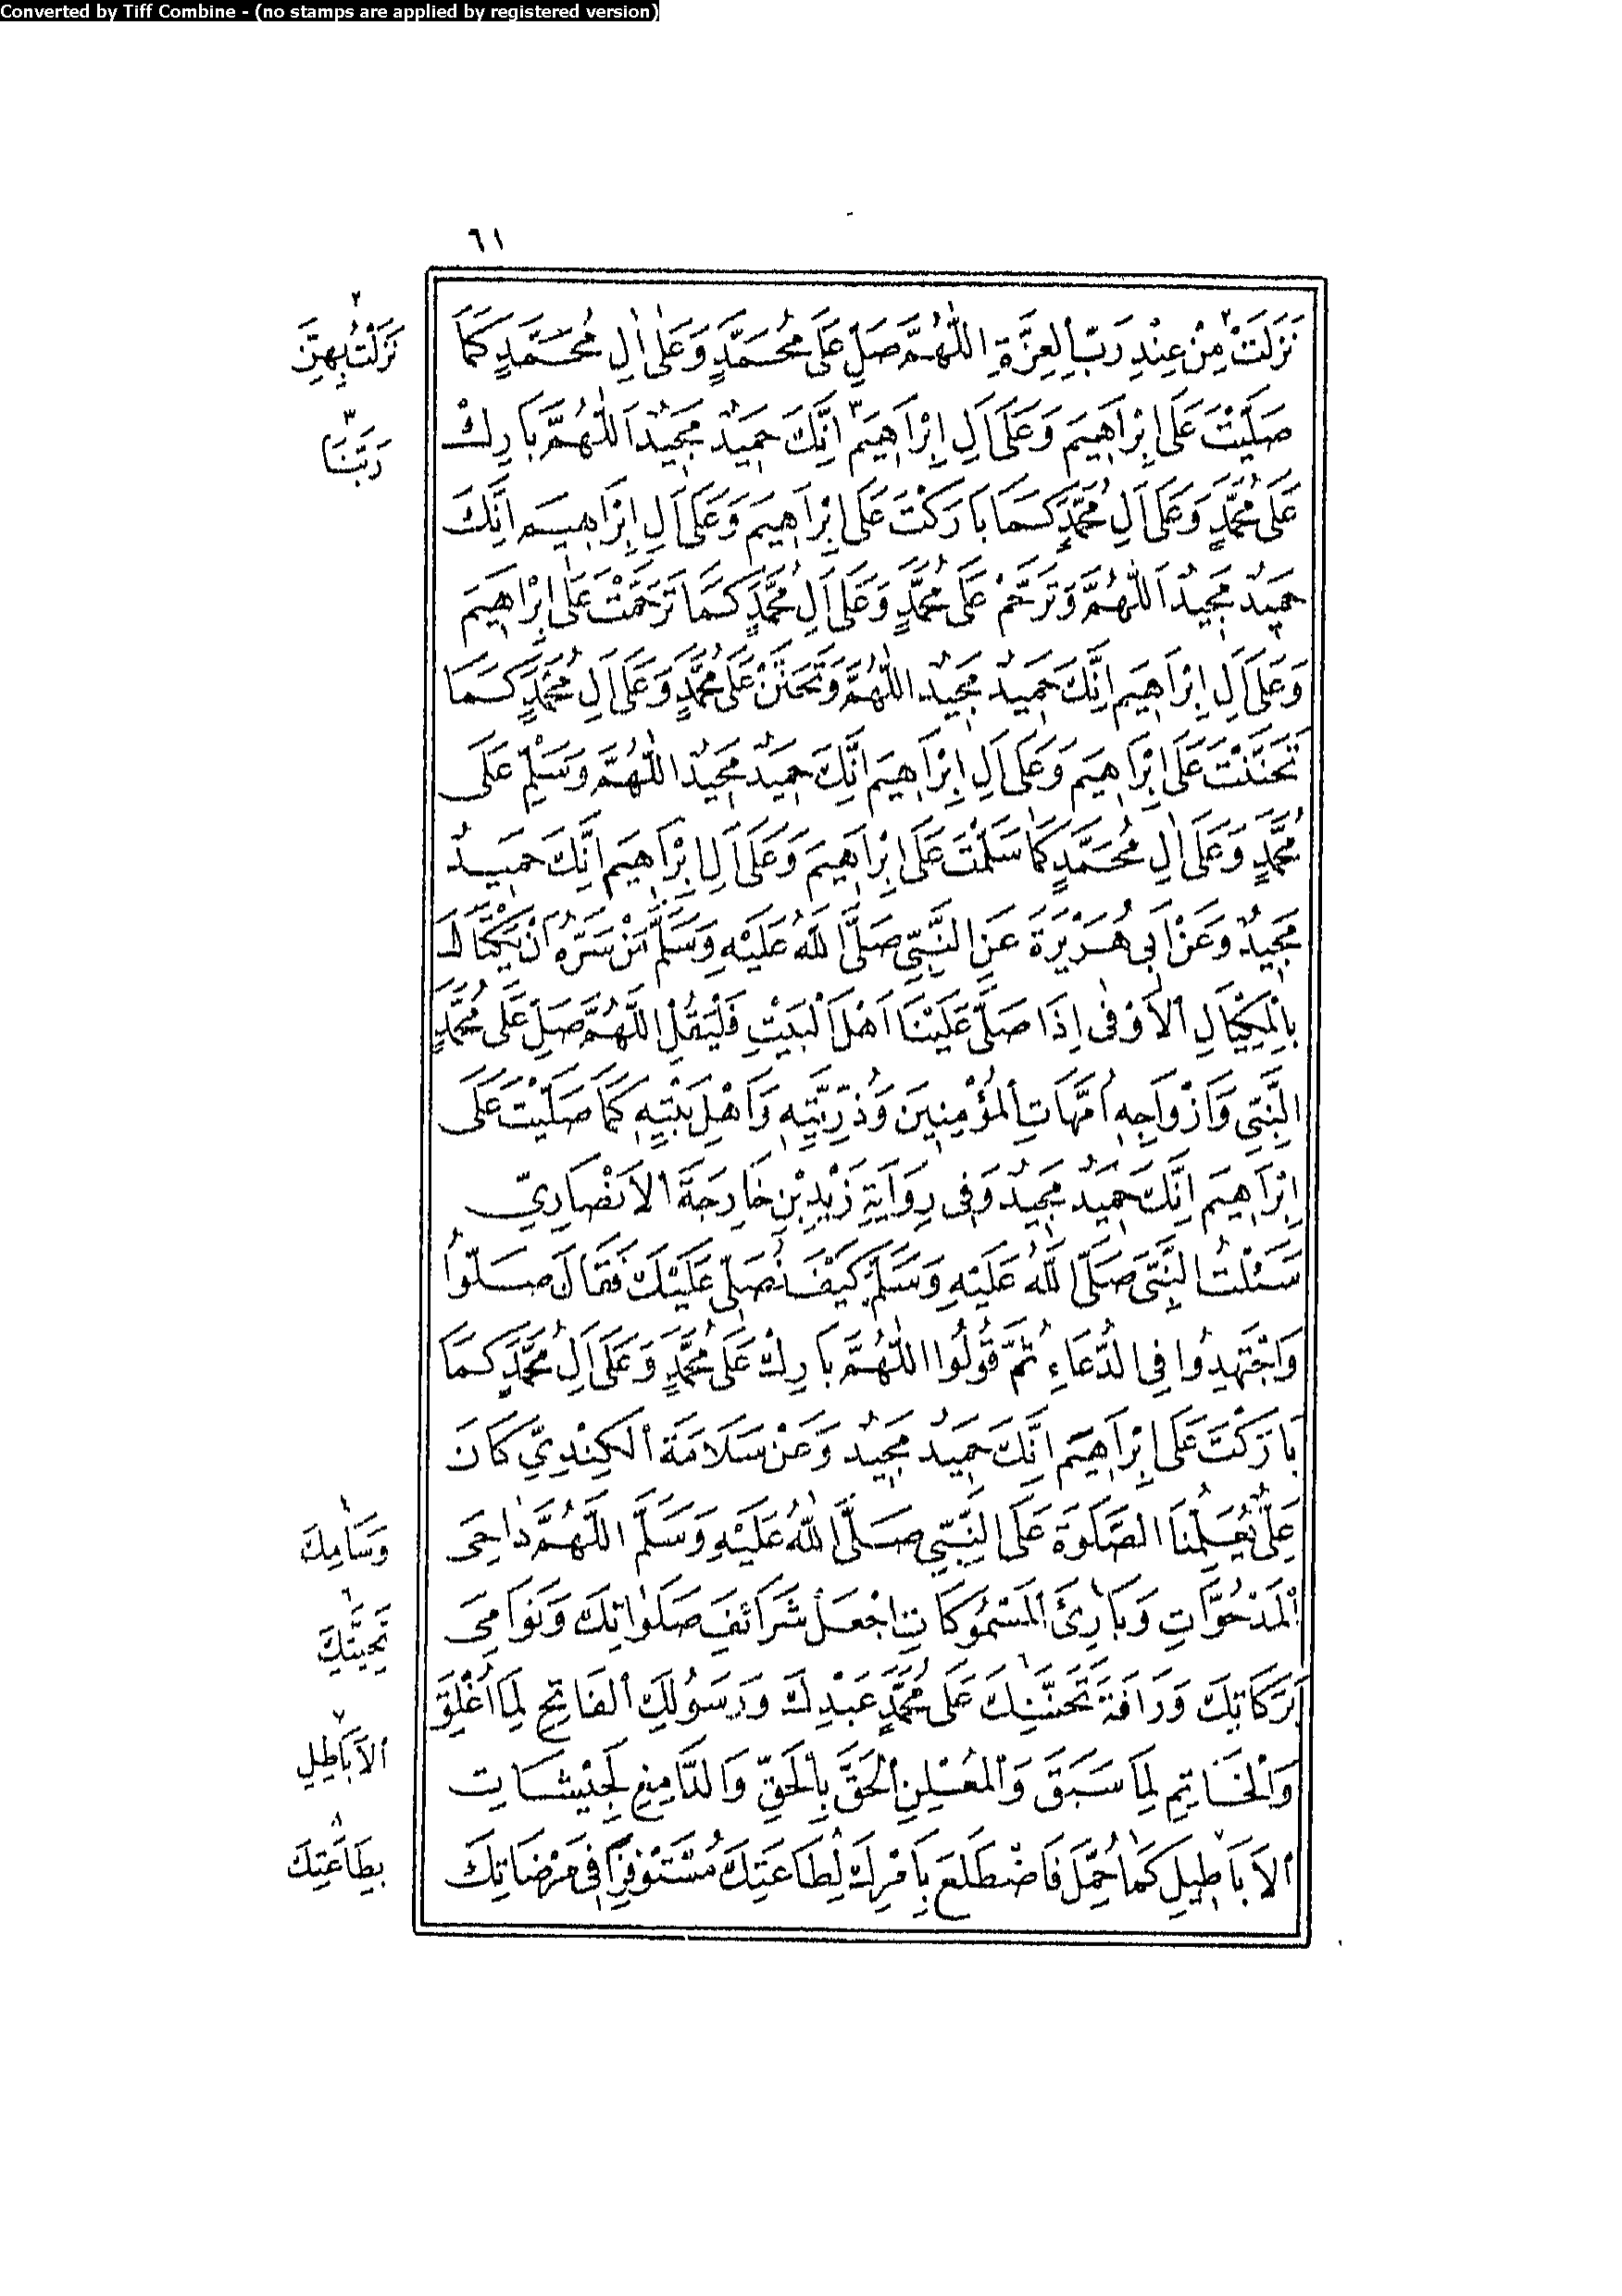 Converted by Tiff Combine - (no stamps are applied by registered version)
٦١
نَزَلَتْ ٢ مِنْ عِنْدِ رَبِّ الْعِزَّةِ اللّٰهُمَّ صَلِّ عَلَى مُحَمَّدٍ وَعَلٰى اٰلِ مُحَمَّدٍ كَمَا
صَلَّيْتَ عَلَى اِبْرَاهِيمَ وَعَلَى اَلِ اِبْرَاهِيمَ ٣ اِنَّكَ حَمِيدٌ مَجِيدٌ اَللّٰهُمَّ بَارِكْ
عَلَى مُحَمَّدٍ وَعَلَى اَلِ مُحَمَّدٍ كَمَا بَارَكْتَ عَلَى اِبْرَاهِيمَ وَعَلَى اَلِ اِبْرَاهِيمَ اِنَّكَ
حَمِيدٌ مَجِيدٌ اَللّٰهُمَّ وَتَرَحَّمْ عَلَى مُحَمَّدٍ وَعَلَى اَلِ مُحَمَّدٍ كَمَا تَرَحَّمْتَ عَلَى اِبْرَاهِيمَ
وَعَلَى اَلِ اِبْرَاهِيمَ اِنَّكَ حَمِيدٌ مَجِيدٌ اللّٰهُمَّ وَتَحَنَّنْ عَلَى مُحَمَّدٍ وَعَلَى اَلِ مُحَمَّدٍ كَمَا
تَحَنَّنْتَ عَلَى اِبْرَاهِيمَ وَعَلَى اَلِ اِبْرَاهِيمَ اِنَّكَ حَمِيدٌ مَجِيدٌ اللّٰهُمَّ وَسَلِّمْ عَلَى
مُحَمَّدٍ وَعَلَى اٰلِ مُحَمَّدٍ كَمَا سَلَّمْتَ عَلَى اِبْرَاهِيمَ وَعَلَى اَلِ اِبْرَاهِيمَ اِنَّكَ حَمِيدٌ
مَجِيدٌ وَعَنْ اَبِى هُرَيْرَةَ عَنِ النَّبِىِّ صَلَّى اللهُ عَلَيْهِ وَسَلَّمَ مَنْ سَرَّهُ اَنْ يَكْتَالَ
بِالْمِكْيَالِ الْاَوْفٰى اِذَا صَلَّى عَلَيْنَا اَهْلَ الْبَيْتِ فَلْيَقُلِ اللّٰهُمَّ صَلِّ عَلَى مُحَمَّدٍ
النَّبِىِّ وَاَزْوَاجِهِ اُمَّهَاتِ الْمُؤْمِنِينَ وَذُرِّيَّتِهِ وَاَهْلِ بَيْتِهِ كَمَا صَلَّيْتَ عَلَى
اِبْرَاهِيمَ اِنَّكَ حَمِيدٌ مَجِيدٌ وَفِى رِوَايَةِ زَيْدِ بْنِ خَارِجَةَ الْاَنْصَارِيِّ
سَئَلْتُ النَّبِىَّ صَلَّى اللهُ عَلَيْهِ وَسَلَّمَ كَيْفَ نُصَلِّى عَلَيْكَ فَقَالَ صَلُّوا
وَاجْتَهِدُوا فِى الدُّعَاءِ ثُمَّ قُولُوا اللّٰهُمَّ بَارِكْ عَلَى مُحَمَّدٍ وَعَلَى اَلِ مُحَمَّدٍ كَمَا
بَارَكْتَ عَلَى اِبْرَاهِيمَ اِنَّكَ حَمِيدٌ مَجِيدٌ وَعَنْ سَلَامَةَ الْكِنْدِيِّ كَانَ
عَلِىٌّ يُعَلِّمُنَا الصَّلٰوةَ عَلَى النَّبِىِّ صَلَّى اللهُ عَلَيْهِ وَسَلَّمَ اللّٰهُمَّ دَاحِىَ
الْمَدْحُوَّاتِ وَبَارِئَ الْمَسْمُوكَاتِ اجْعَلْ شَرَائِفَ صَلَوَاتِكَ وَنَوَامِىَ
بَرَكَاتِكَ وَرَأفَةَ تَحَنُّنِكَ ٦ عَلَى مُحَمَّدٍ عَبْدِكَ وَرَسُولِكَ الْفَاتِحِ لِمَا اُغْلِقَ
وَالْخَاتِمِ لِمَا سَبَقَ وَالْمُعْلِنِ الْحَقَّ بِالْحَقِّ وَالدَّامِغِ لِجَيْشَاتِ
الْاَبَاطِيلِ ٧ كَمَا حُمِّلَ فَاضْطَلَعَ بِاَمْرِكَ لِطَاعَتِكَ ٨ مُسْتَوْفِزًا فِى مَرْضَاتِكَ
٢
نَزَلَتْ بِهِنَّ
٣
رَبَّنَا
٤
وَسَامِكَ
٦
تَحِيَّتِكَ
٧
الْاَبَاطِلِ
٨
بِطَاعَتِكَ